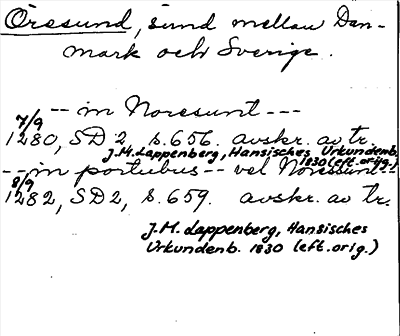 Öresund, sund mellan Dan-
mark och Sverige.
-- in Noresunt ---
7/9
1280, SD 2 s. 656. avskr. av tr.
J.M. Lappenberg, Hansisches Urkundenb.
1830 (eft. orig.)
-- in portubus -- vel Noressunt --
8/9
1282, SD2, s. 659. avskr. av tr.
J.M. Lappenberg, Hansisches
Urkundenb. 1830 (eft. orig.)